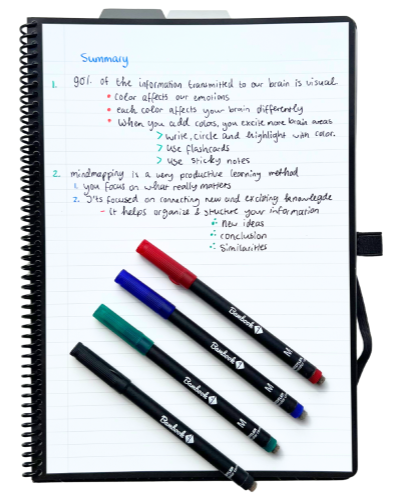 Summary
1. 90% of the information transmitted to our brain is visual
• Color affects our emotions
• each color affects your brain differently
• When you add colors, you excite more brain areas
> Write, circle and highlight with color.
> Use flashcards
> Use sticky notes
2. mindmapping is a very productive learning method
1. you focus on what really matters
2. It's focused on connecting new and exciting knowlegde
- it helps organize & structure your information
∴ New ideas
∴ conclusion
∴ Similarities
Bambook M
Bambook M
Bambook M
Bambook M